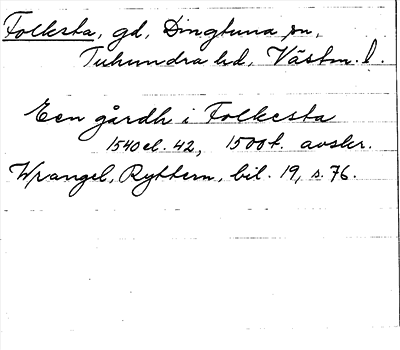 Folkesta, gd, Dingtuna sn,
Tuhundra hd, Västm. l.
Een gårdh i Folkesta
1540 el. 42, 1500t. avskr.
Wrangel, Ryttern, bil. 19, s. 76.